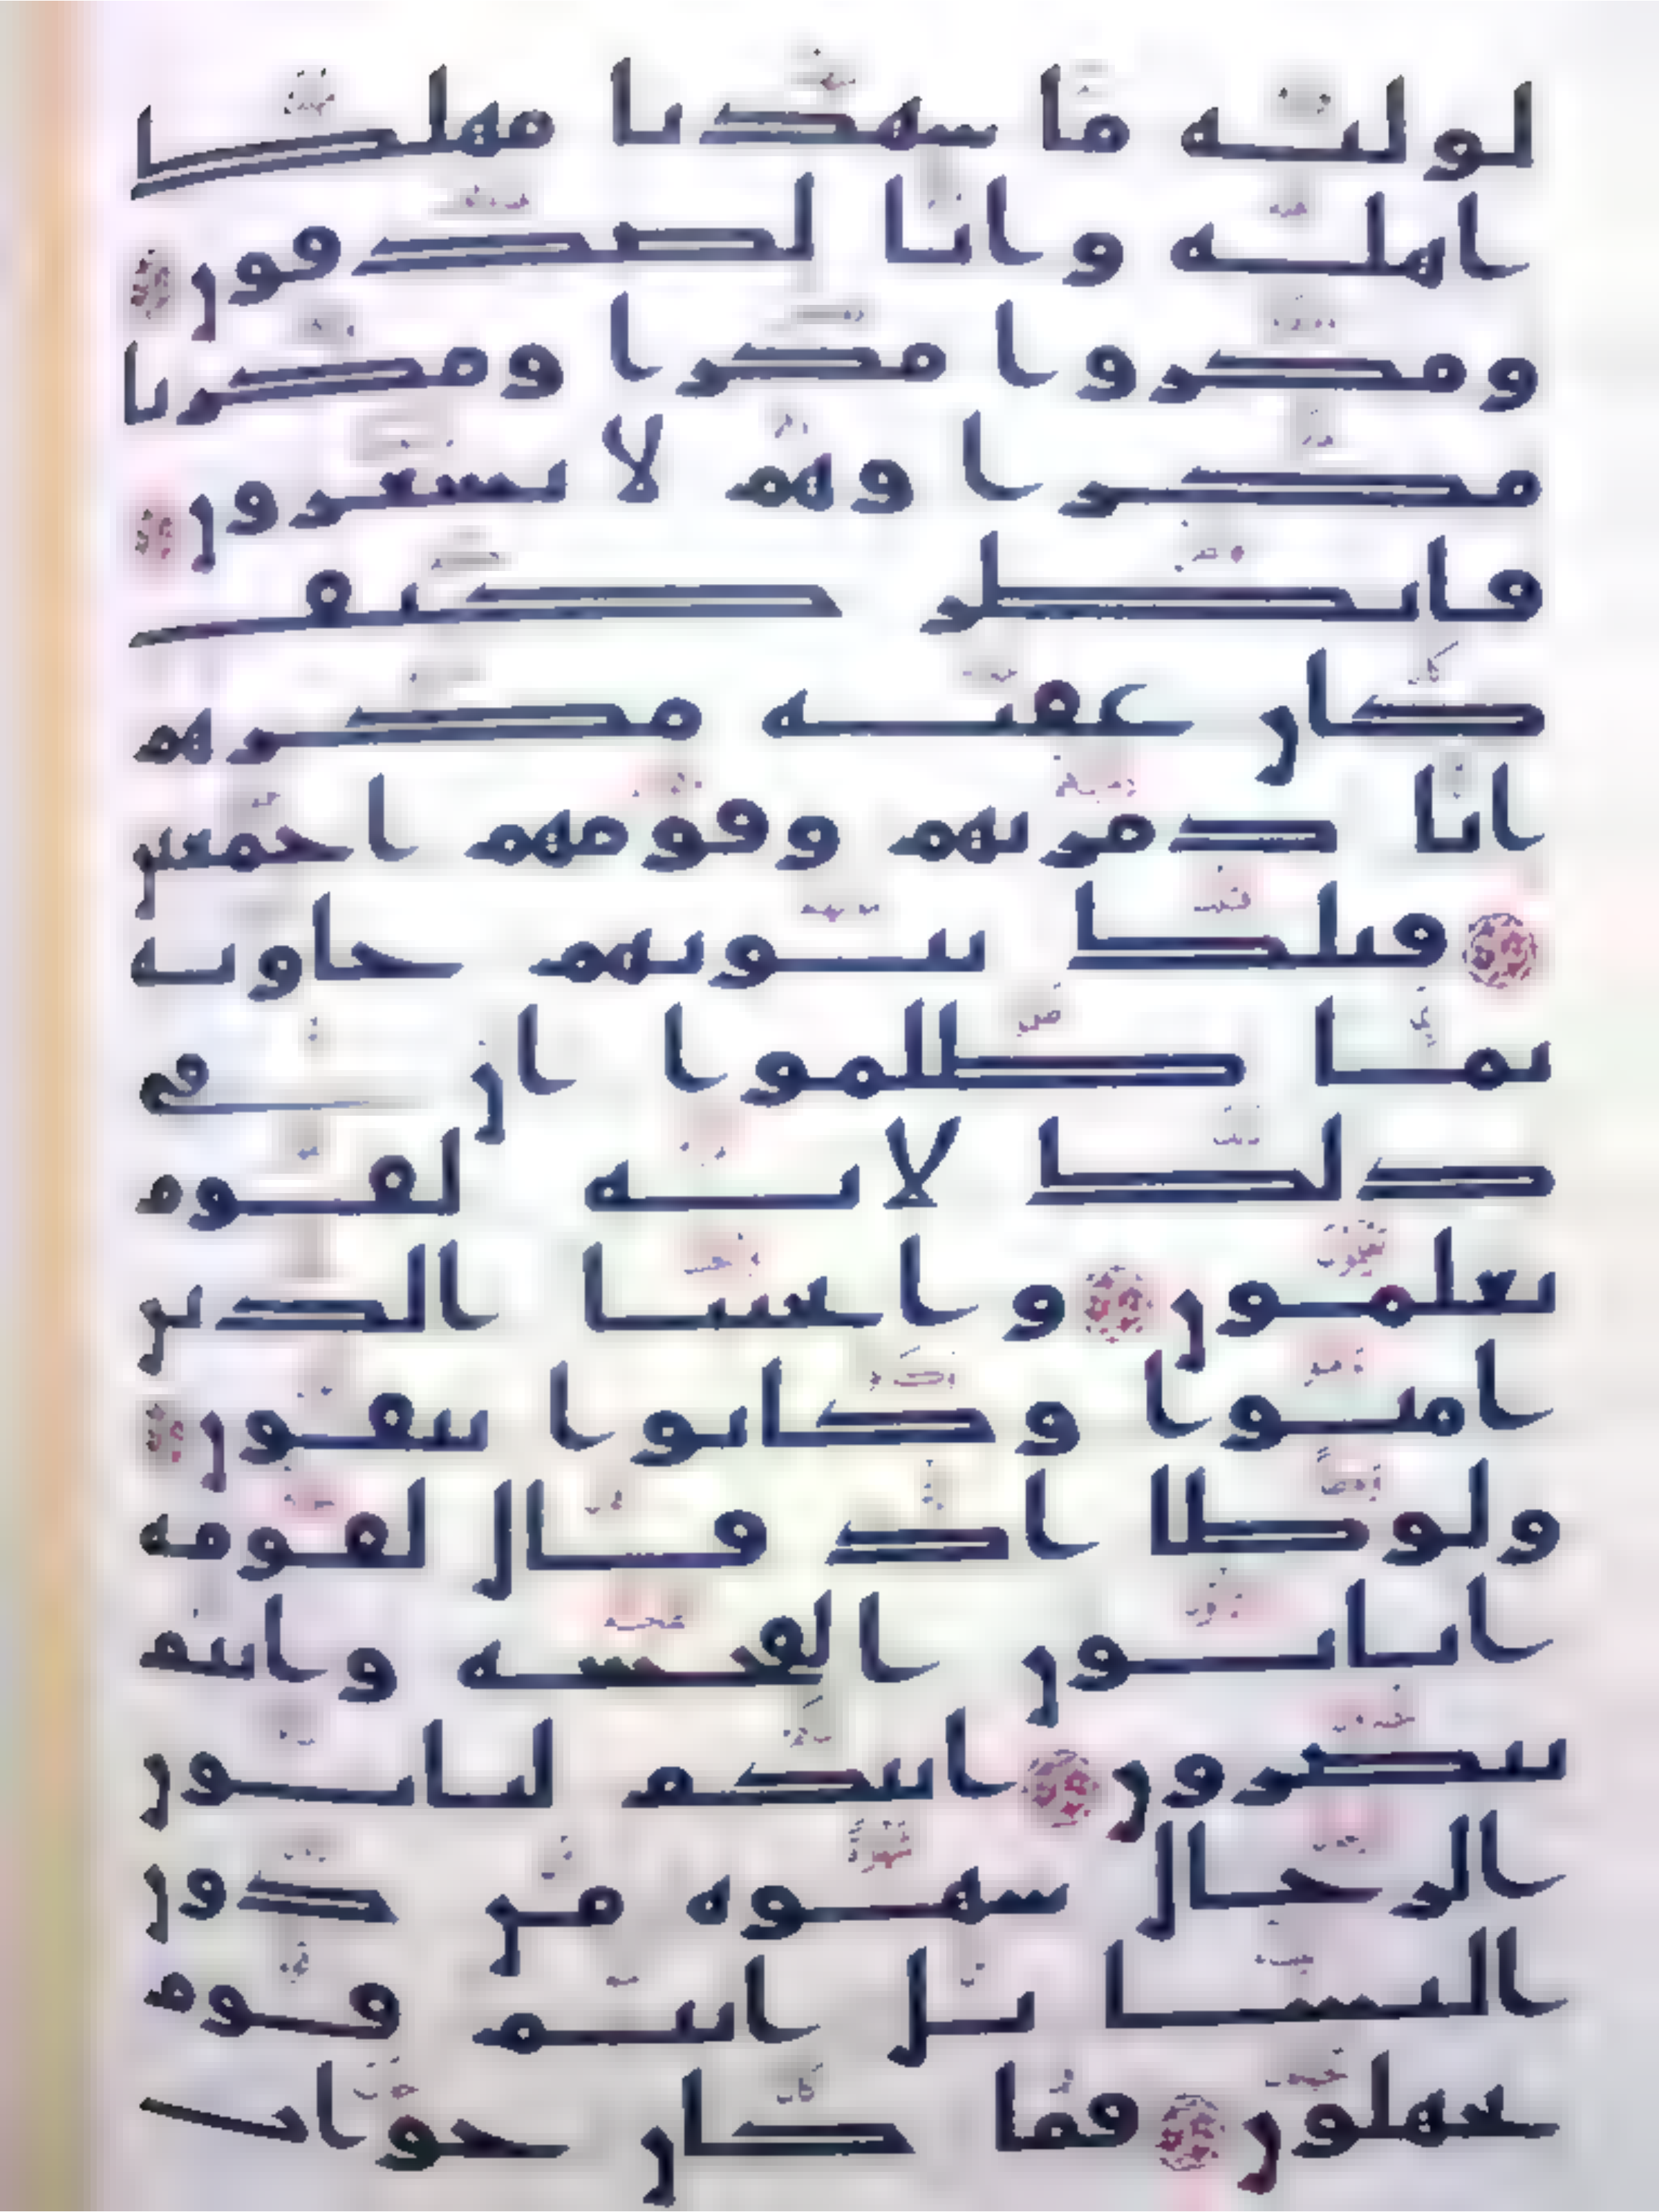 لوليه ما شهدنا مهلك
اهله وانا لصدقون
ومكروا مكرا ومكرنا
مكرا وهم لا يشعرون
فانظر كيف
كان عقبة مكرهم
انا دمرنهم وقومهم اجمعين
فتلك بيوتهم خاوية
بما ظلموا ان في
ذلك لاية لقوم
يعلمون وانجينا الذين
امنوا وكانوا يتقون
ولوطا اذ قال لقومه
اتاتون الفحشة وانتم
تبصرون ائنكم لتاتون
الرجال شهوة من دون
النسا بل انتم قوم
تجهلون فما كان جواب